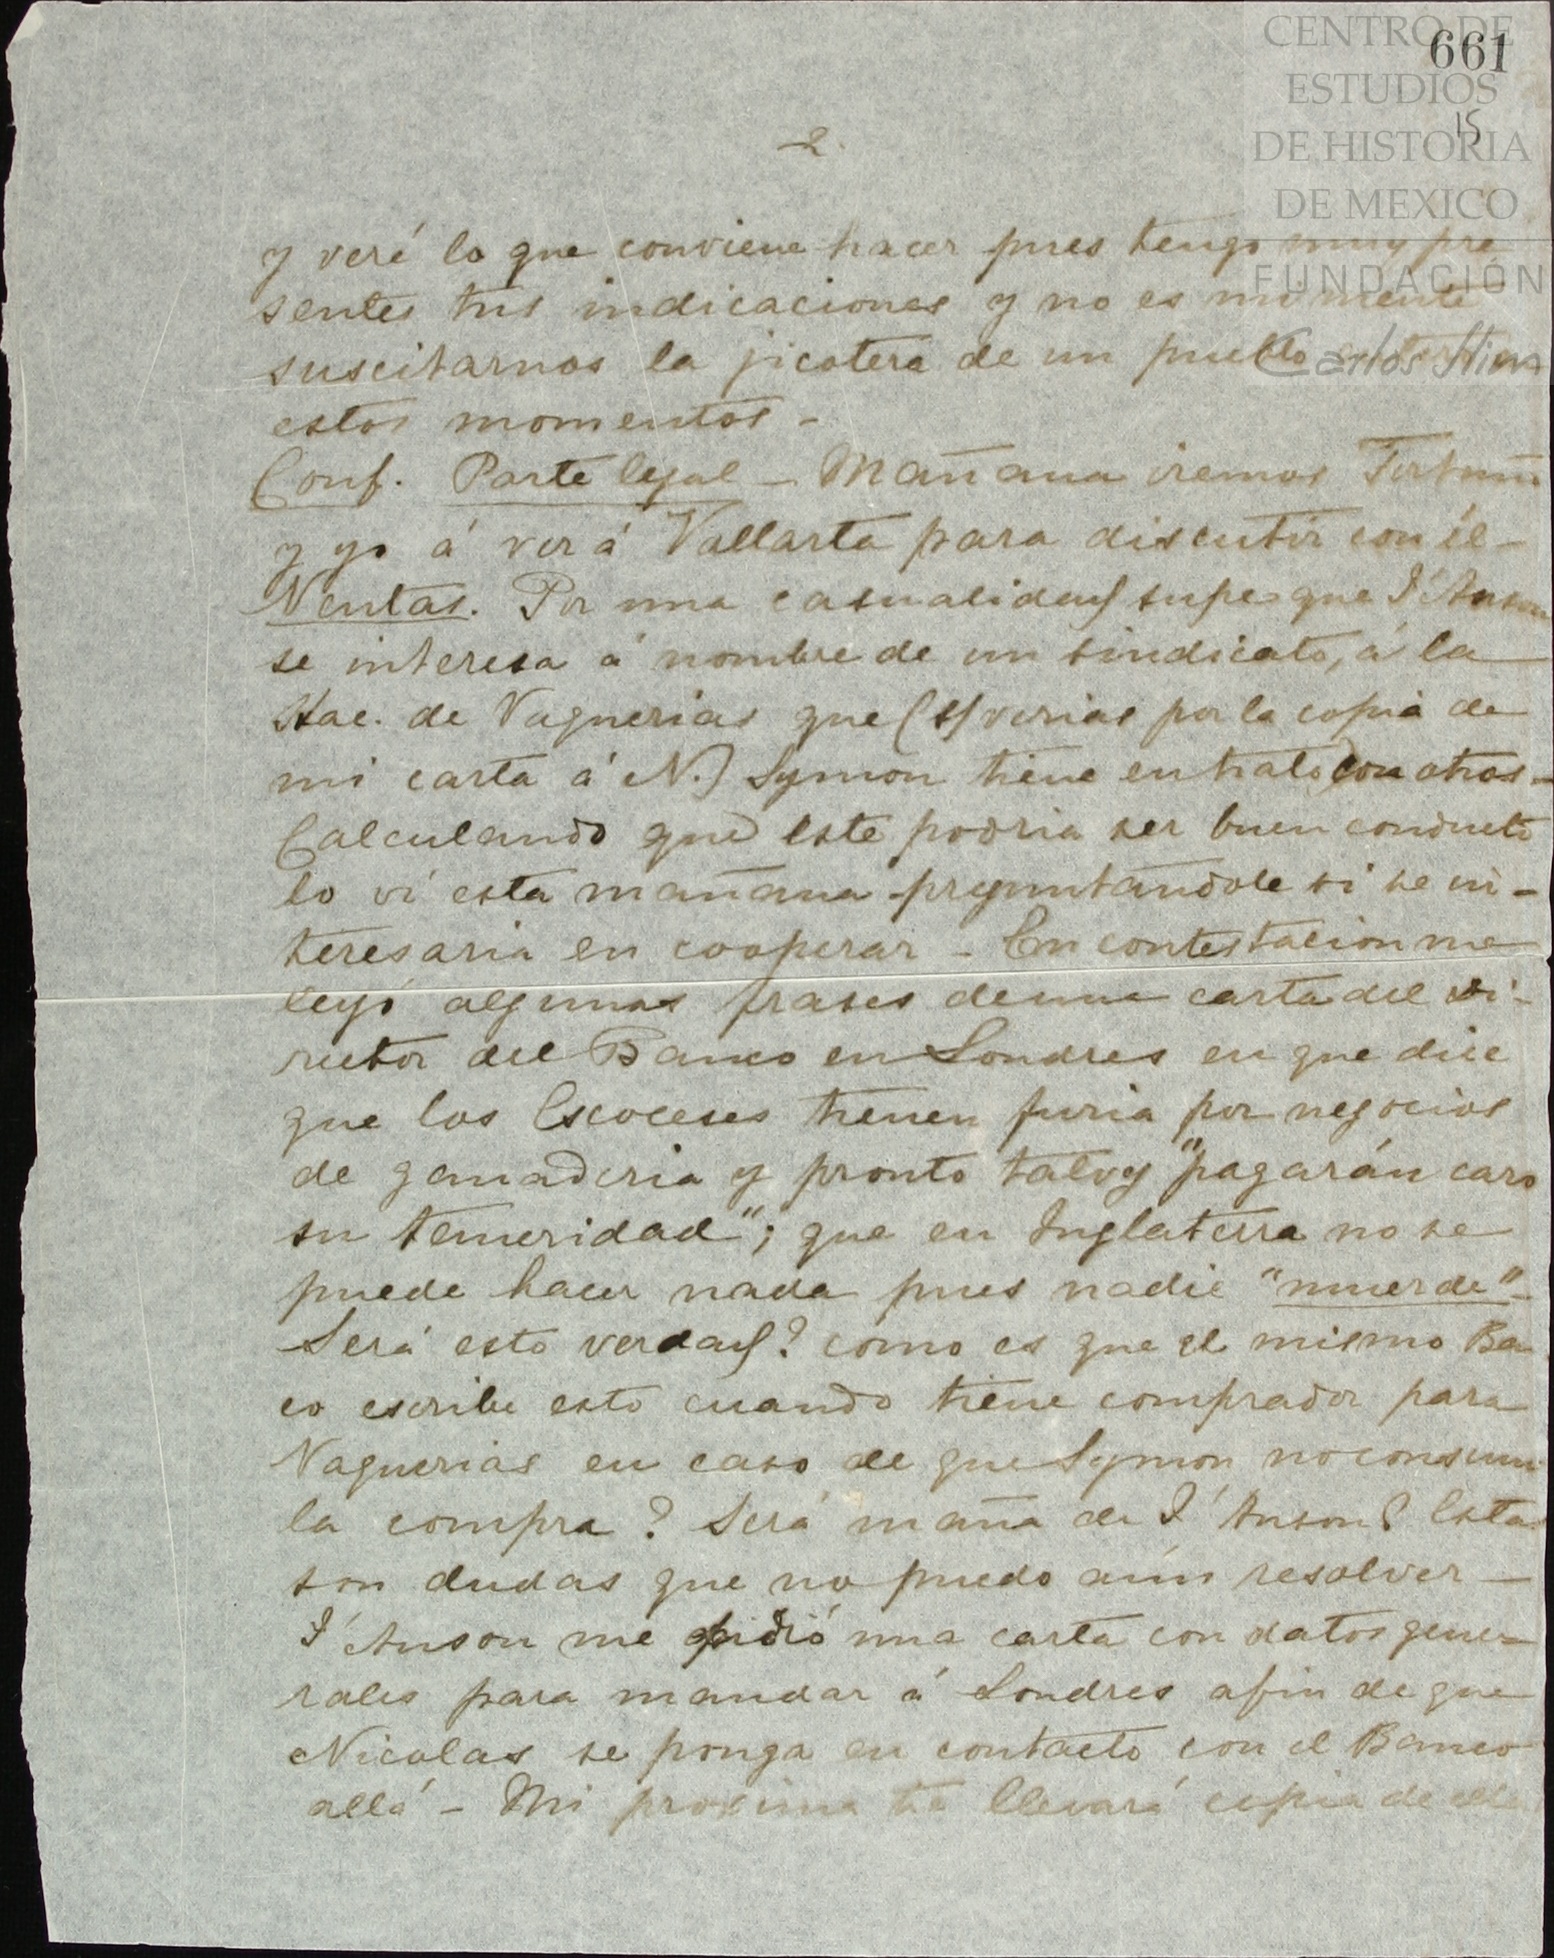 CENTRO DE
ESTUDIOS
DE HISTORIA
DE MEXICO
FUNDACIÓN
Carlos Slim
661
15
2.
y veré lo que conviene hacer pues tengo muy pre
sentes tus indicaciones y no es mi mente
suscitarnos la jicotera de un pueblo
estos momentos -
Conf. Parte legal - Mañana iremos Fortuño
y yo á ver á Vallarta para discutir con él -
Ventas. Por una casualidad supe que I'Anson
se interesa á nombre de un sindicato, á la
Hac. de Vaquerias que (s/ verias por la copia de
mi carta á N.) Symon tiene en trato con otros -
Calculando que este podria ser buen conducto
lo ví esta mañana preguntandole si se in-
teresaria en cooperar - En contestacion me
leyó algunas frases de una carta del di-
rector del Banco en Londres en que dice
que los Escoceses tienen furia por negocios
de ganaderia y pronto talvez "pagarán caro
su temeridad"; que en Inglaterra no se
puede hacer nada pues nadie "muerde" -
Será esto verdad? como es que el mismo Ban
co escribe esto cuando tiene comprador para
Vaquerias en caso de que Symon no consuma
la compra? Será maña de I'Anson? Estas
son dudas que no puedo aún resolver -
I'Anson me pidió una carta con datos gene-
rales para mandar á Londres afin de que
Nicolas se ponga en contacto con el Banco
allá - Mi proxima te llevará copia de ella